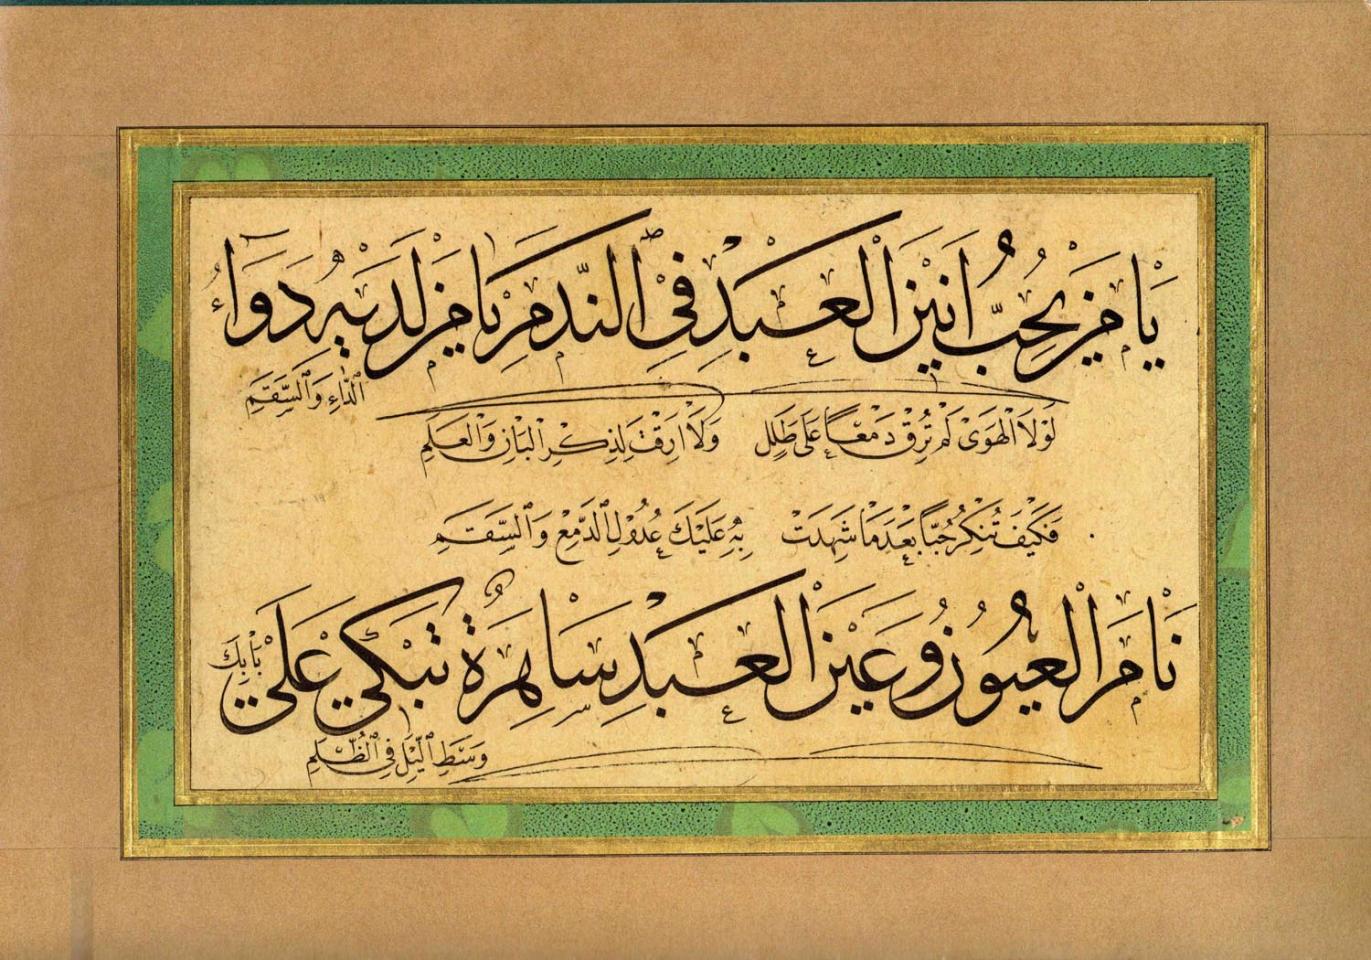 يَا مَنْ يُحِبُّ اَنِينَ الْعَبْدِ فِي النَّدَمِ يَا مَنْ لَدَيْهِ دَوَاءُ
الدَّاءِ وَالسَّقَمِ
لَوْلَا الْهَوَى لَمْ تُرِقْ دَمْعًا عَلَى طَلَلٍ وَلَا اَرِقْتَ لِذِكْرِ الْبَانِ وَالْعَلَمِ
فَكَيْفَ تُنْكِرُ حُبًّا بَعْدَ مَا شَهِدَتْ بِهِ عَلَيْكَ عُدُولُ الدَّمْعِ وَالسَّقَمِ
نَامَ الْعُيُونُ وَعَيْنُ الْعَبْدِ سَاهِرَةٌ تَبْكِي عَلَى
بَابِكَ
وَسَطِ اللَّيْلِ فِي الظُّلَمِ